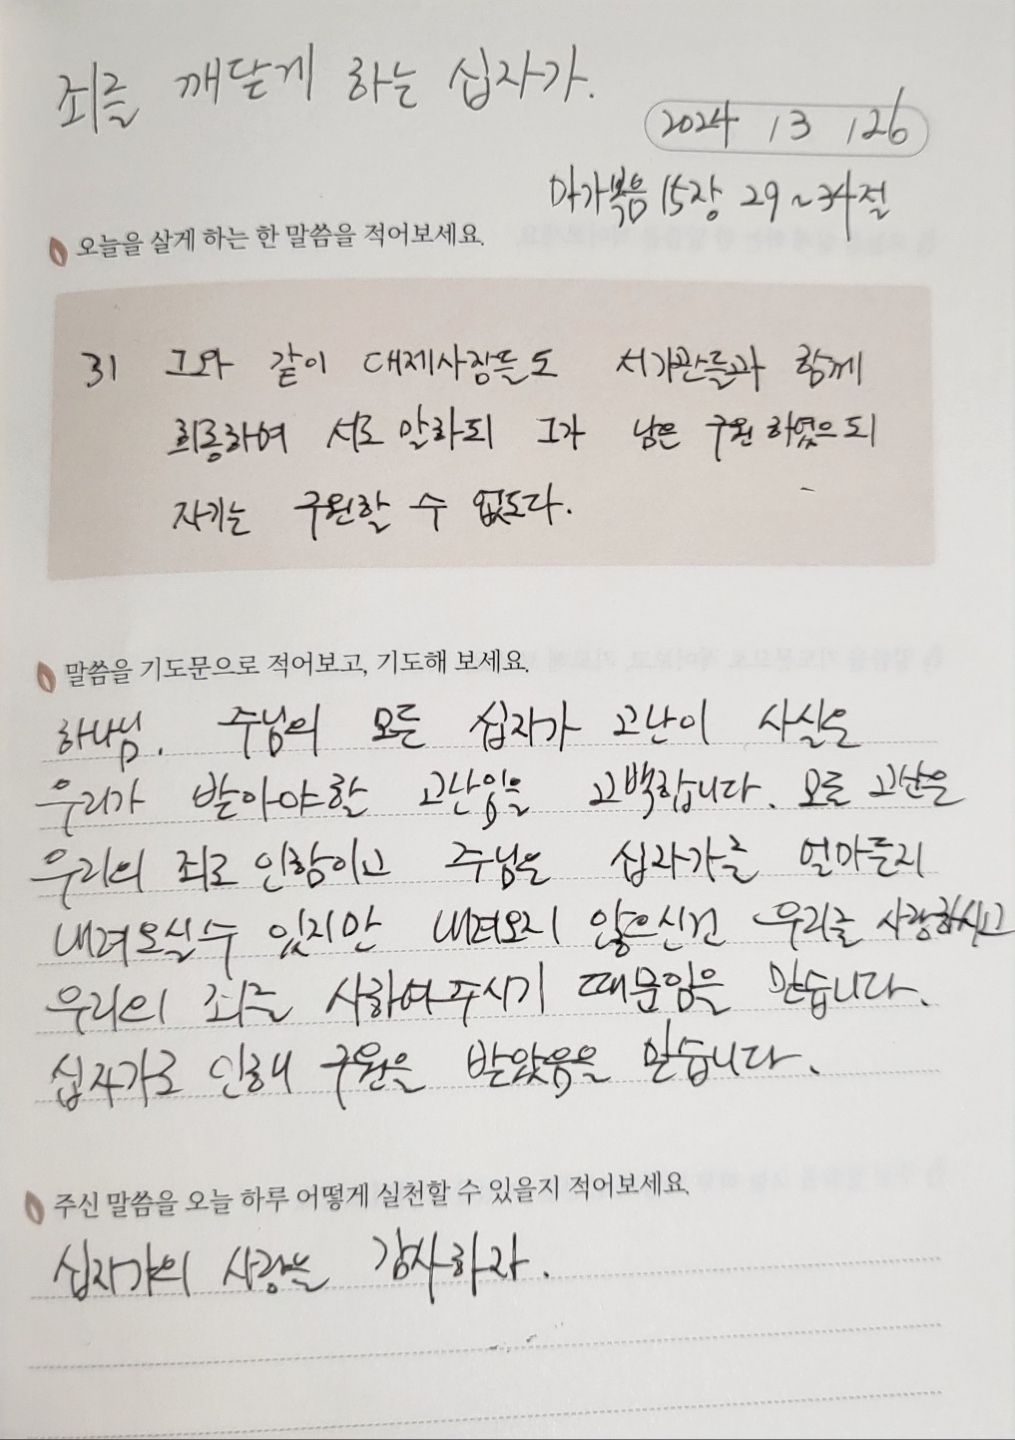 죄를 깨닫게 하는 십자가.
2024 / 3 / 26
마가복음 15장 29~34절
오늘을 살게 하는 한 말씀을 적어보세요.
31 그와 같이 대제사장들도 서기관들과 함께
희롱하여 서로 말하되 그가 남은 구원하였으되
자기는 구원할 수 없도다.
말씀을 기도문으로 적어보고, 기도해 보세요.
하나님. 주님의 모든 십자가 고난이 사실은
우리가 받아야할 고난임을 고백합니다. 모든 고난은
우리의 죄로 인함이고 주님은 십자가를 얼마든지
내려오실수 있지만 내려오지 않으신건 우리를 사랑하시고
우리의 죄를 사하여주시기 때문임을 믿습니다.
십자가로 인해 구원을 받았음을 믿습니다.
주신 말씀을 오늘 하루 어떻게 실천할 수 있을지 적어보세요.
십자가의 사랑을 감사하라.